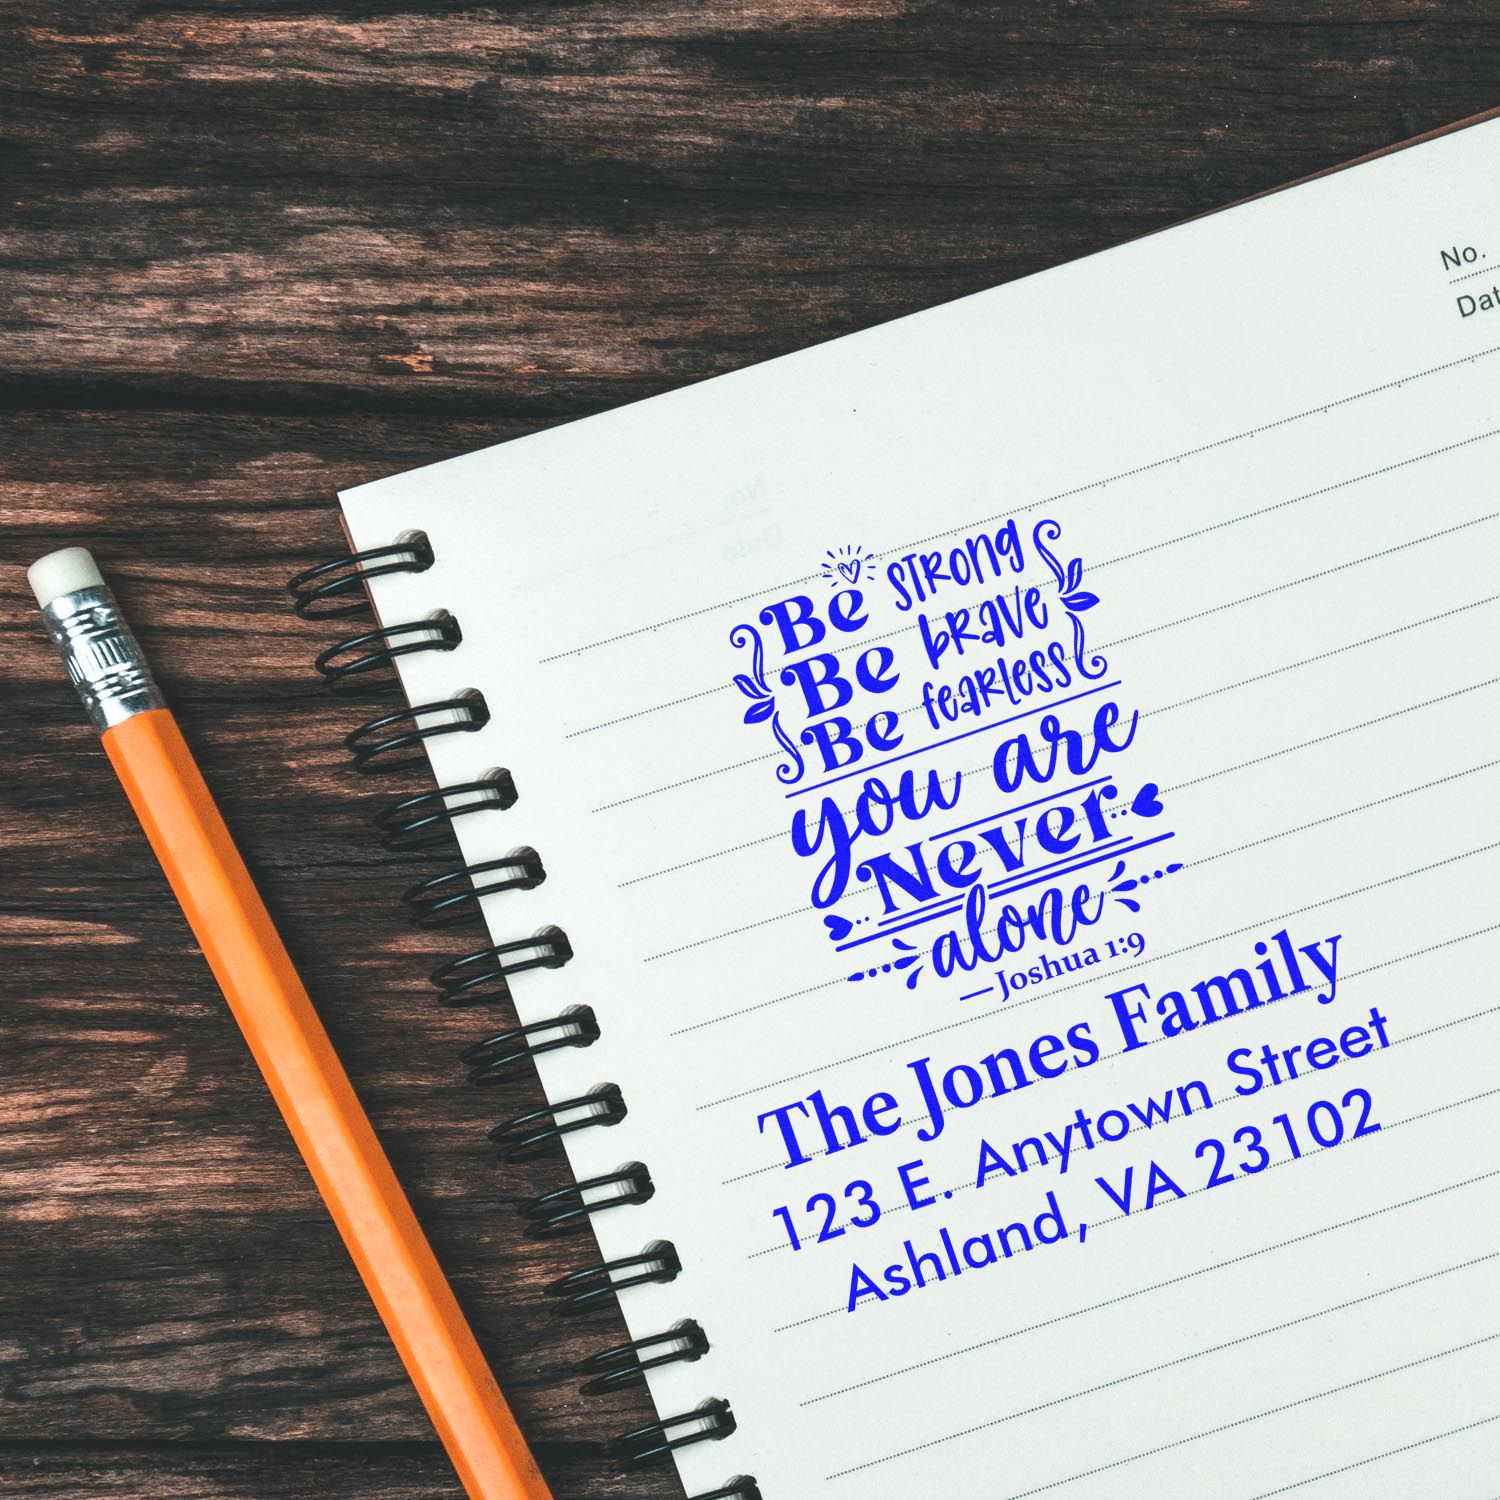 No.
Dat
Be strong
Be brave
Be fearless
you are
Never
alone
—Joshua 1:9
The Jones Family
123 E. Anytown Street
Ashland, VA 23102